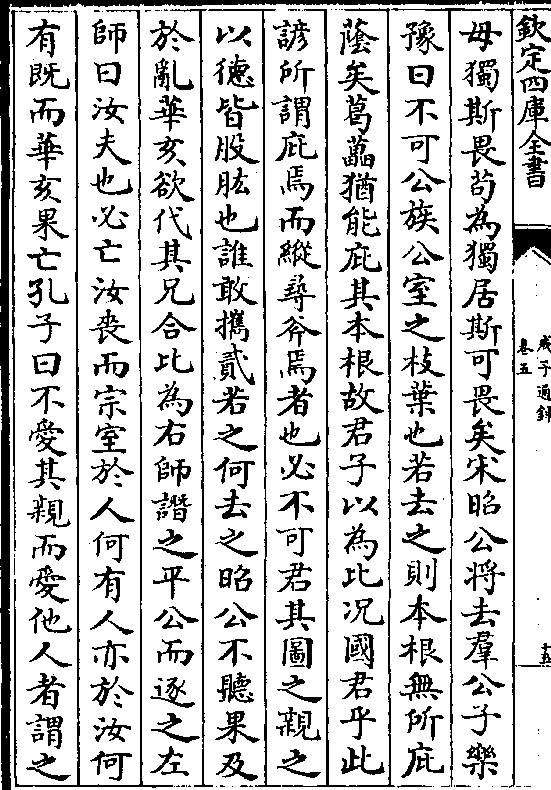 欽定四庫全書
戒子通錄
卷五
十五
毋獨斯畏苟為獨居斯可畏矣宋昭公將去羣公子樂
豫曰不可公族公室之枝葉也若去之則本根無所庇
蔭矣葛藟猶能庇其本根故君子以為比况國君乎此
諺所謂庇焉而縱尋斧焉者也必不可君其圖之親之
以德皆股肱也誰敢攜貳若之何去之昭公不聽果及
於亂華亥欲代其兄合比為右師譖之平公而逐之左
師曰汝夫也必亡汝喪而宗室於人何有人亦於汝何
有既而華亥果亡孔子曰不愛其親而愛他人者謂之